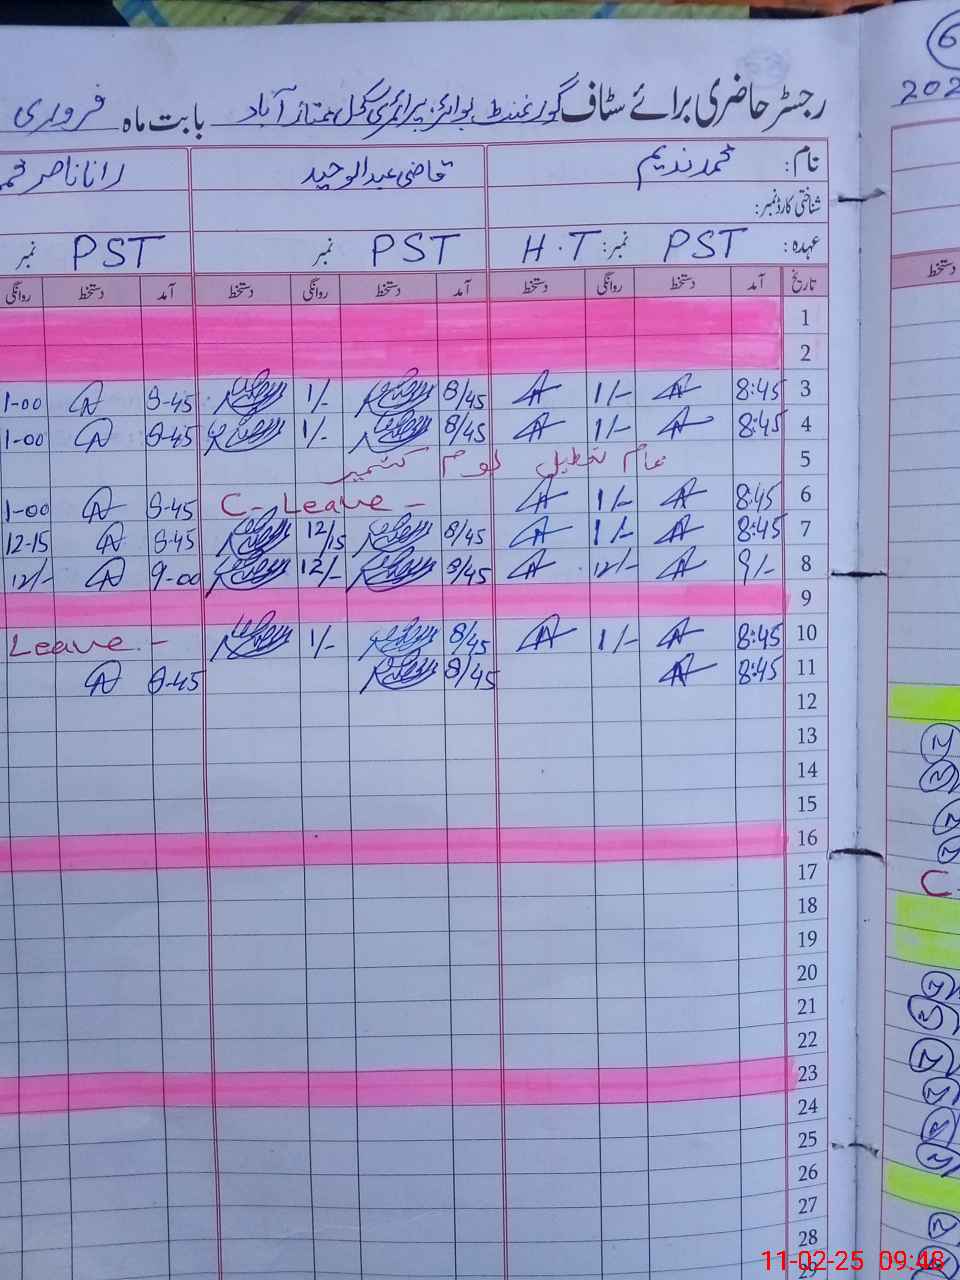 رجسٹر حاضری برائے سٹاف گورنمنٹ بوائز پرائمری سکول ممتاز آباد بابت ماہ فروری
نام: محمد ندیم قاضی عبدالوحید رانا ناصر
شناختی کارڈ نمبر:
عہدہ: PST نمبر: H.T PST نمبر PST نمبر
تاریخ آمد دستخط روانگی دستخط آمد دستخط روانگی دستخط آمد دستخط روانگی
1
2
3 8:45 1/- 8/45 1/- 8-45 1-00
4 8:45 1/- 8/45 1/- 8-45 1-00
5 عام تعطیل یوم کشمیر
6 8:45 1/- C-Leave - 8-45 1-00
7 8:45 1/- 8/45 12/15 8-45 12-15
8 9/- 12/- 8/45 12/- 9-00 12/-
9
10 8:45 1/- 8/45 1/- Leave -
11 8:45 8/45 8-45
12
13
14
15
16
17
18
19
20
21
22
23
24
25
26
27
28
29
6
202
دستخط
C-
11-02-25 09:48